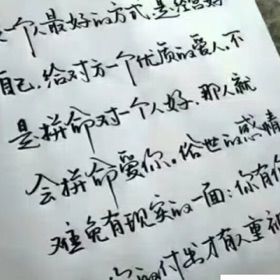 个人最好的方式，是经营好
自己，给对方一个优质的爱人，不
是拼命对一个人好，那人就
会拼命爱你。俗世的感情
难免有现实的一面：你有价
你的付出才有人重视